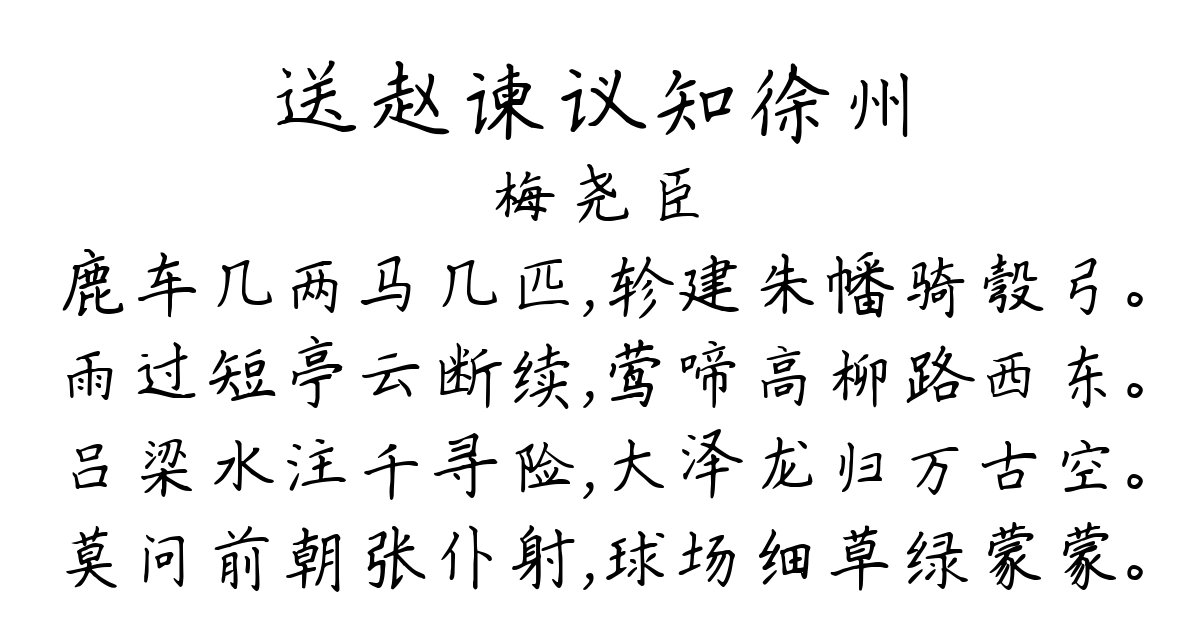 送赵谏议知徐州
梅尧臣
鹿车几两马几匹,轸建朱幡骑彀弓。
雨过短亭云断续,莺啼高柳路西东。
吕梁水注千寻险,大泽龙归万古空。
莫问前朝张仆射,球场细草绿蒙蒙。